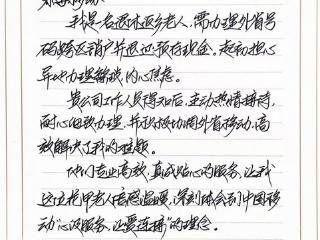 我是名退休返乡老人，需办理外省号
码跨区销户并退还预存现金。起初担心
异地办理繁琐的心焦虑。
贵公司工作人员得知后，主动热情接待，
耐心细致办理，并积极协调外省移动，高
效解决了我的难题。
他们专业高效，真诚贴心的服务，让我
这位花甲老人倍感温暖，深刻体会到中国移
动“心级服务，让爱连接”的理念。